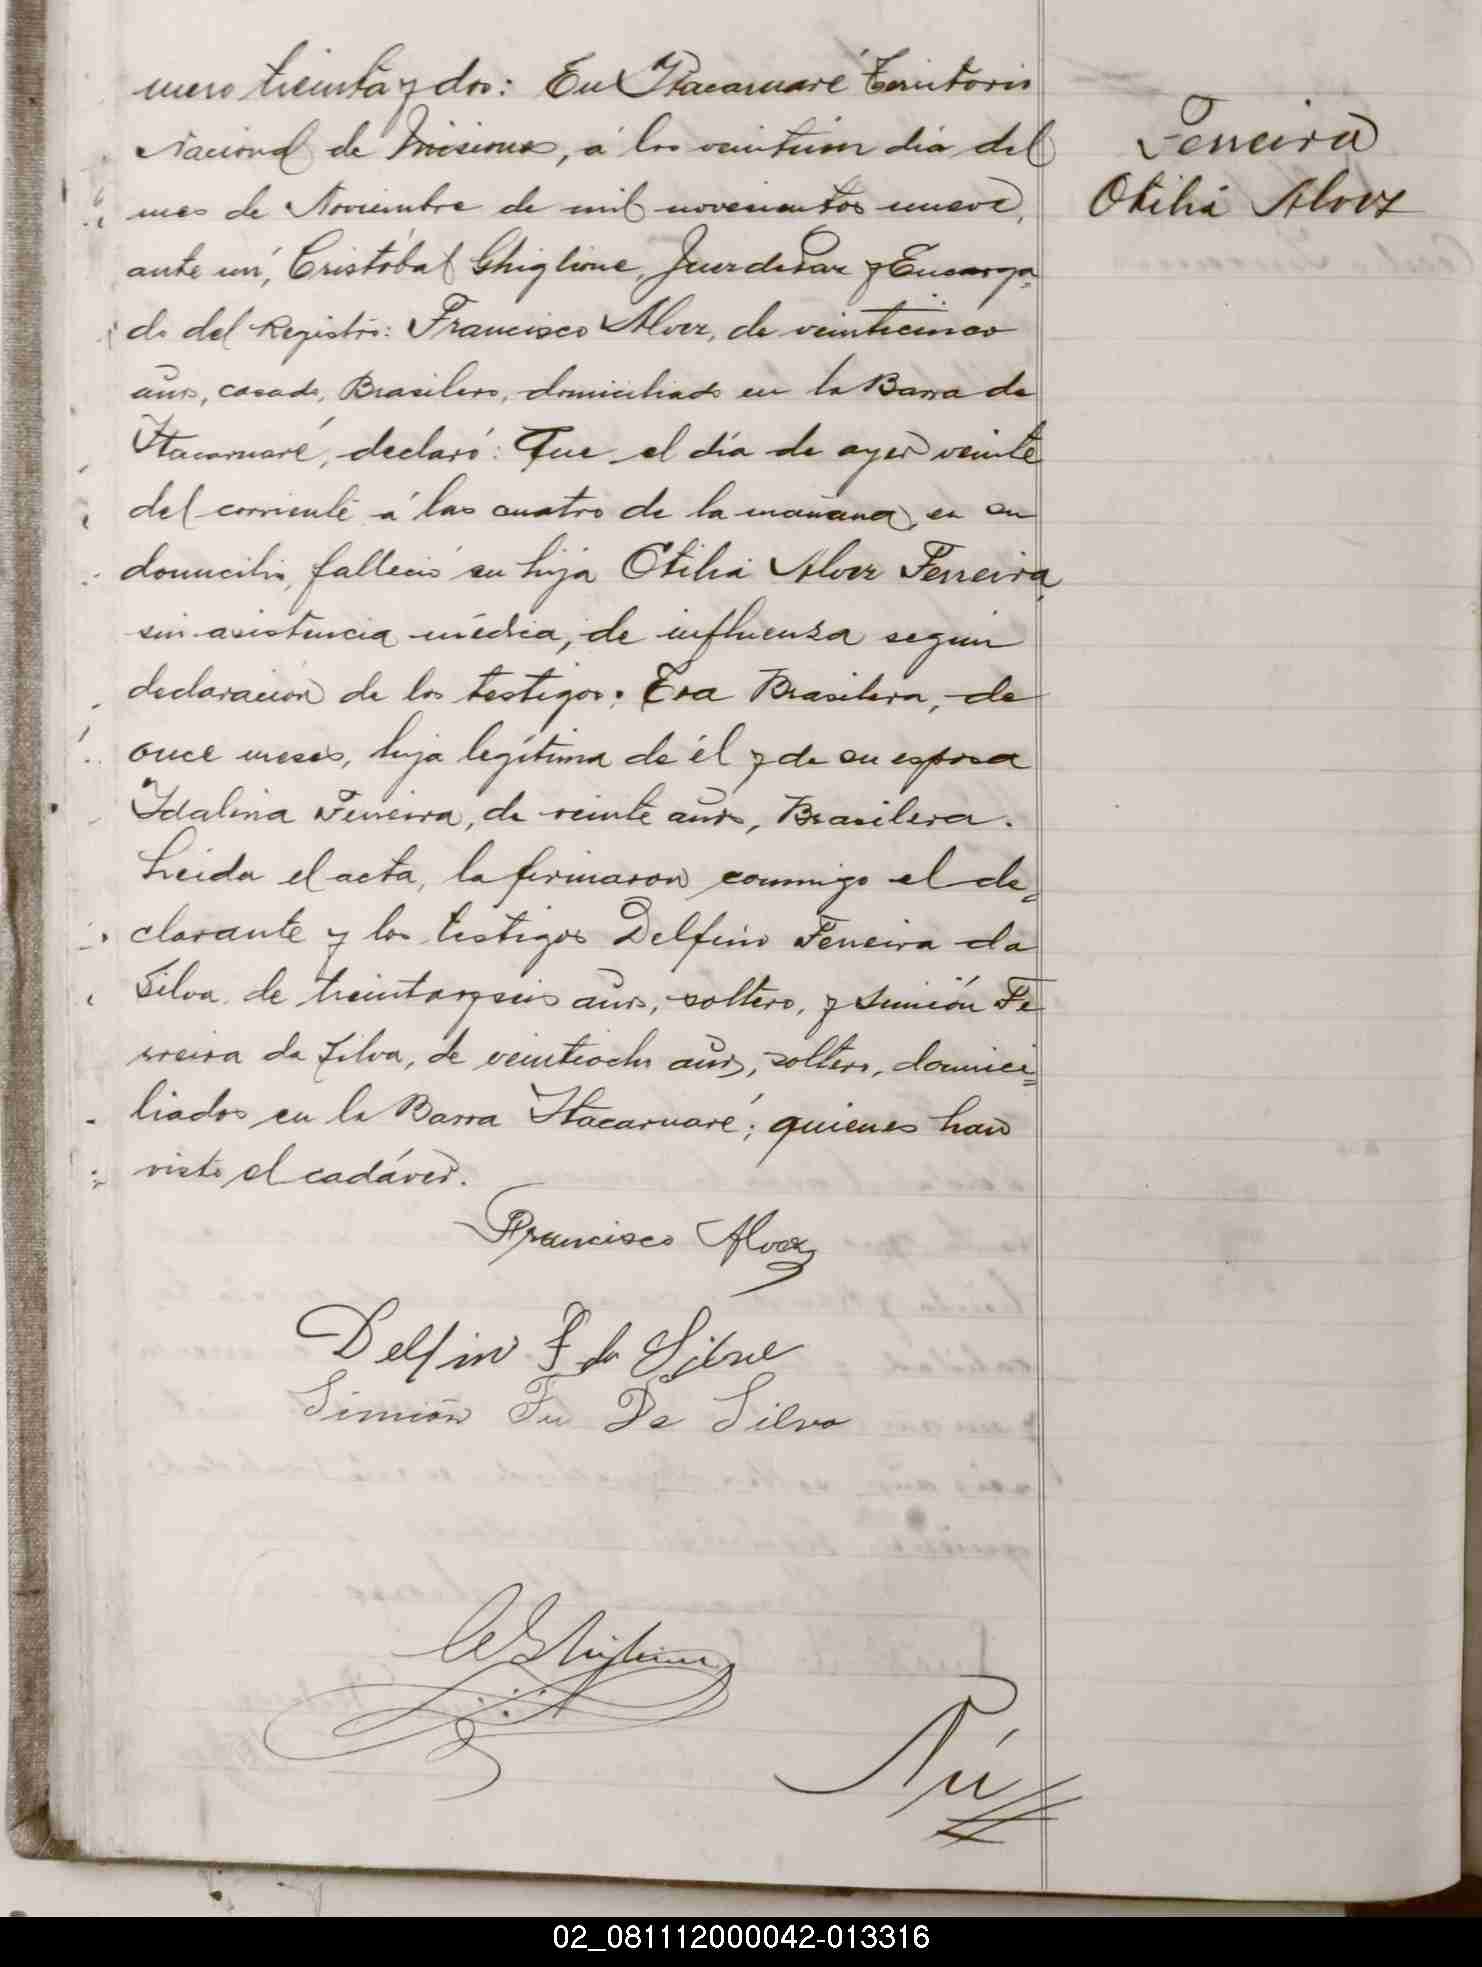 mero treinta y dos: En Itacaruaré Territorio
Nacional de Misiones, á los veintiun dia del
mes de Noviembre de mil novecientos nueve,
ante mí, Cristóbal Ghiglione, Juez de Paz y Encarga=
do del Registro: Francisco Alvez, de veinticinco
años, casado, Brasilero, domiciliado en la Barra de
Itacaruaré, declaró: Que el día de ayer veinte
del corriente á las cuatro de la mañana, en su
domicilio, falleció su hija Otilia Alvez Ferreira,
sin asistencia médica, de influenza según
declaración de los testigos. Era Brasilera, de
once meses, hija legítima de él y de su esposa
Idalina Ferreira, de veinte años, Brasilera.
Leida el acta, la firmaron conmigo el de=
clarante y los testigos Delfino Ferreira da
Silva, de treinta y seis años, soltero, y Simión Fe
rreira da Silva, de veintiocho años, soltero, domici=
liados en la Barra Itacaruaré; quienes han
visto el cadáver.
Francisco Alvez
Delfino F da Silva
Simión Fer De Silva
C Ghiglione
Nú
Ferreira
Otilia Alvez
02_081112000042-013316